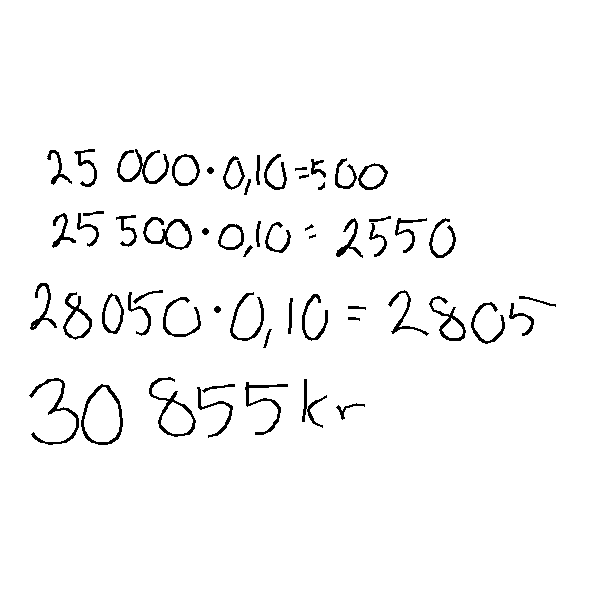 25 000 · 0,10 = 500
25 500 · 0,10 = 2550
28050 · 0,10 = 2805
30 855 kr